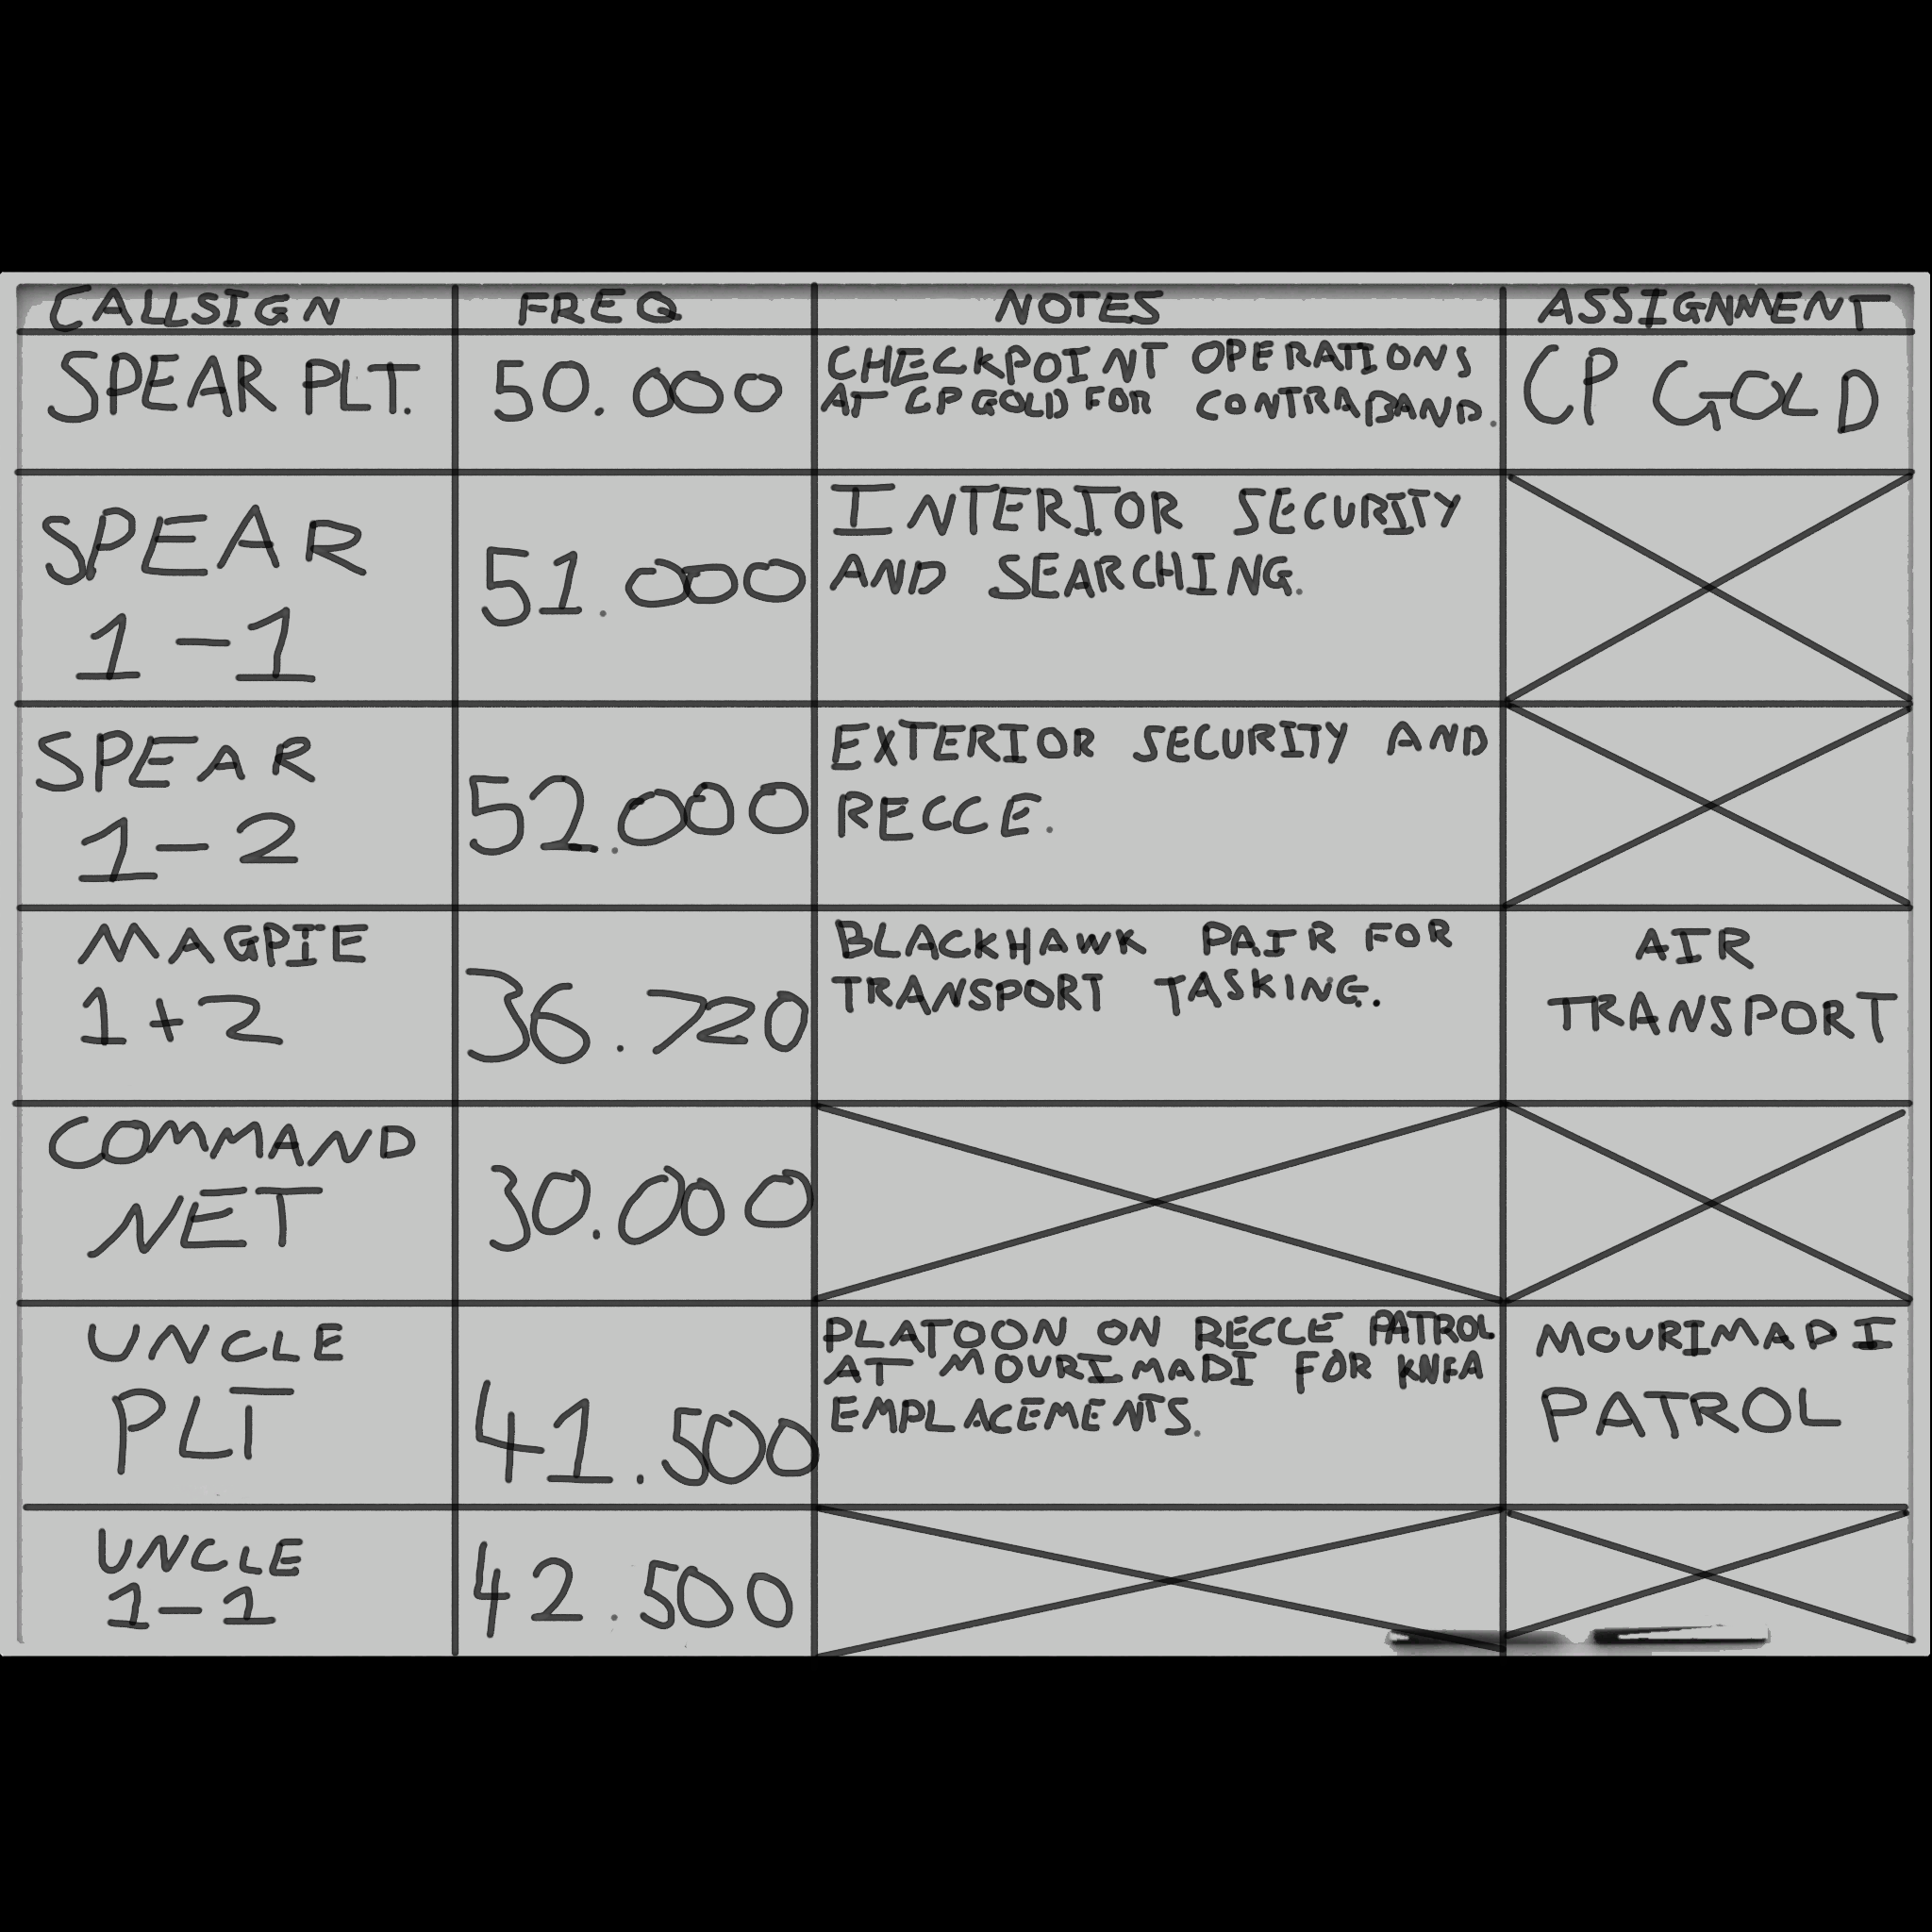 CALLSIGN FREQ NOTES ASSIGNMENT
SPEAR PLT. 50.000 CHECKPOINT OPERATIONS
AT CP GOLD FOR CONTRABAND. CP GOLD
SPEAR
1-1 51.000 INTERIOR SECURITY
AND SEARCHING.
SPEAR
1-2 52.000 EXTERIOR SECURITY AND
RECCE.
MAGPIE
1+2 36.720 BLACKHAWK PAIR FOR
TRANSPORT TASKING. AIR
TRANSPORT
COMMAND
NET 30.000
UNCLE
PLT 41.500 PLATOON ON RECCE PATROL
AT MOURIMADI FOR
EMPLACEMENTS. MOURIMADI
PATROL
UNCLE
1-1 42.500